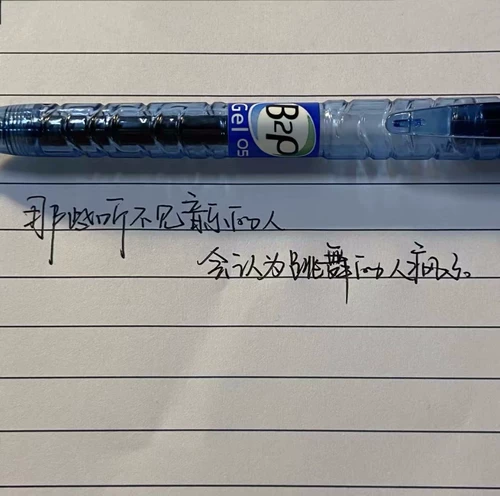 B2P
Gel 05
那些听不见音乐的人
会认为跳舞的人疯了。